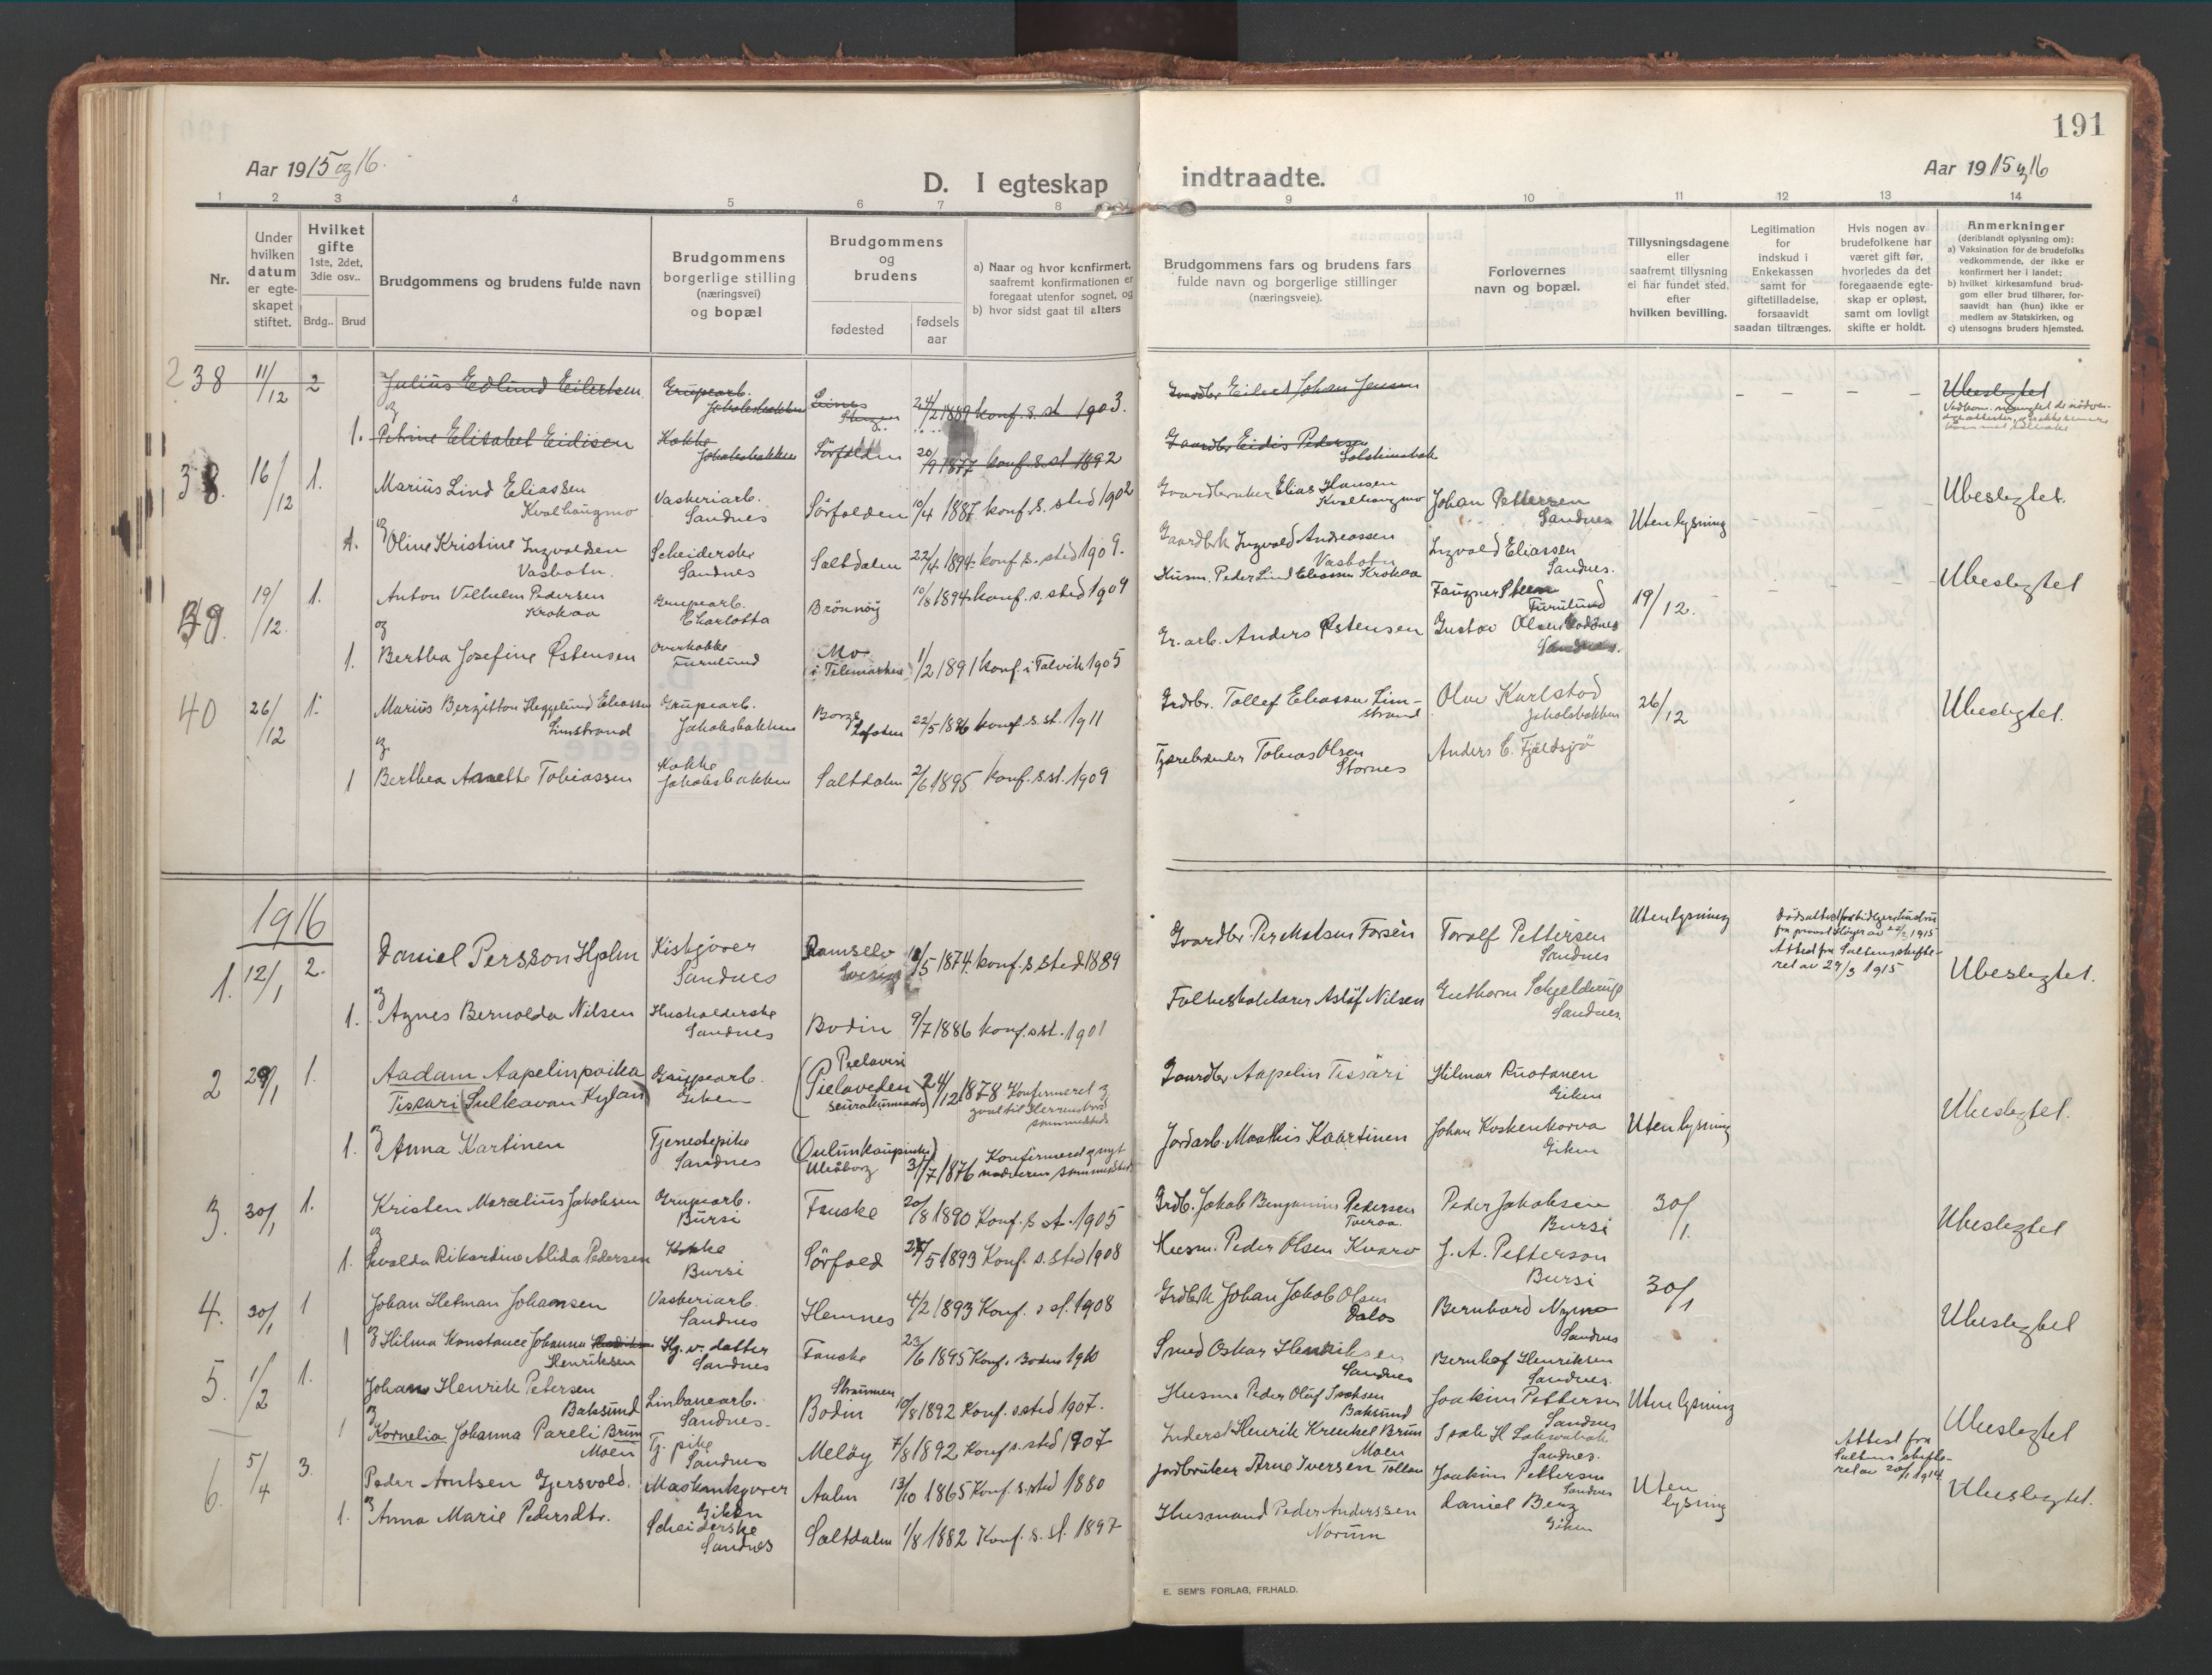 191
Aar 1915 og 16.
D. I egteskap indtraadte.
Aar 1915 og 16
1 2 3 4 5 6 7 8 9 10 11 12 13 14
Nr.
Under hvilken datum er egteskapet stiftet.
Hvilket gifte 1ste, 2det, 3die osv..
Brdg.. Brud
Brudgommens og brudens fulde navn
Brudgommens borgerlige stilling (næringsvei) og bopæl
Brudgommens og brudens
fødested
fødsels aar
a) Naar og hvor konfirmert, saafremt konfirmationen er foregaat utenfor sognet, og
b) hvor sidst gaat til alters
Brudgommens fars og brudens fars fulde navn og borgerlige stillinger (næringsveie).
Forlovernes navn og bopæl.
Tillysningsdagene eller saafremt tillysning ei har fundet sted, efter hvilken bevilling.
Legitimation for indskud i Enkekassen samt for giftetilladelse, forsaavidt saadan tiltrænges.
Hvis nogen av brudefolkene har været gift før, hvorledes da det foregaaende egteskap er opløst, samt om lovligt skifte er holdt.
Anmerkninger
(deriblandt oplysning om):
a) Vaksination for de brudefolks vedkommende, der ikke er konfirmert her i landet;
b) hvilket kirkesamfund brudgom eller brud tilhører, forsaavidt han (hun) ikke er medlem av Statskirken, og
c) utensogns bruders hjemsted.
38 11/12 2 Julius Edlund Eilertsen Grupearb. Jakobsbakken Leines Steigen 24/2 1889 konf. s. st 1903. Gaardbr Eilert Johan Jensen - - - - Ubeslegtet
og
1. Petrine Elisabet Eidisen Kokke Jakobsbakken Sörfolden 20/9 1877 konf. s. st 1892 Gaardbr Eidis Pedersen
38. 16/12 1. Marius Lind Eliassen Kvalhaugmo Vaskeriarb. Sandnes Sörfolden 10/4 1887 konf. s. sted 1902 Gaardbruker Elias Hansen Kvalhaugmo Johan Pettersen Sandnes Uten lysning Ubeslegtet.
og
1. Oline Kristine Ingvaldsen Vasbotn. Scheiderske Sandnes Saltdalen 22/4 1894 konf s. sted 1909. Gaardbk Ingvald Andreassen Vasbotn Ingvald Eliassen Sandnes.
39. 19/12. 1. Anton Vilhelm Pedersen Krokaa Grupearb. Charlotta Brönnöy 10/8 1894 konf. s. sted 1909 Husm. Peder Lind Eliassen Krokaa Fauzner Steen Furulund 19/12. Ubeslegtet
og
1. Bertha Josefine Østensen Overkokke Furulund Mo i Telemarken 1/2 1891 konf. i Talvik 1905 Gr. arb. Anders Østensen Gustav Olsen
40 26/12 1. Marius Bergitton Heggelund Eliassen Limstrand Grupearb. Jakobsbakken Borge Lofoten 22/5 1886 konf s. st. 1911 Grdbr. Tollef Eliassen Limstrand Olav Karlstad Jakobsbakken 26/12 Ubeslegtet.
og
1 Berthea Anette Tobiassen Kokke Jakobsbakken Saltdalen 2/6 1895 konf. s. st. 1909 Tjærebrænder Tobias Olsen Stornes Anders C. Fjeldsjö
1916
1. 12/1 2. Daniel Persson Hjelm Kiskjörer Sandnes Ramsele Sverige 18/5 1874. konf. s sted 1889 Gaardbr Per Matsen Forsén Torolf Pettersen Sandnes Uten lysning Dödsattest for tidligere hustru fra provst Höyer av 24/2 1915 Attest fra Saltens skifteret av 29/3 1915 Ubeslegtet.
og
1. Agnes Bernolda Nilsen Husholderske Sandnes Bodin 9/7 1886 konf. s st. 1901 Folkeskolelærer Asløf Nilsen Guthorm Schjelderup Sandnes.
2 29/1 1. Aadam Aapelinpoika Tissari (Sulkavan Kylan) Grupearb. Giken Pielavesi (Pielaveden seurakunnasta) 24/12 1878 Konfirmeret og gaat til Herrens bord sammesteds Gaardbr Aapelin Tissäri Hilmar Ruotanen Giken Uten lysning Ubeslegtet.
og
1. Anna Kartinen Tjenestepike Sandnes (Oulunkaupunki) Uleåborg 31/7 1876 Konfirmeret og nyt nadveren sammesteds Jordarb. Mathis Kaartinen Johan Koskenkorva Giken
3. 30/1 1. Kristen Marcelius Jakobsen Grupearb. Bursi Fauske 20/8 1890 Konf. s st. 1905 Grdb. Jakob Benjamins Pedersen Tveraa. Peder Jakobsen Bursi 30/1. Ubeslegtet
og
1. Svalda Rikardine Alida Pedersen Kokke Bursi Sörfold 27/5 1893 Konf. s. sted 1908 Husm. Peder Olsen Kvarv J. A. Petterson Bursi
4. 30/1 1 Johan Hetman Johansen Vaskeriarb. Sandnes Hemnes 4/2 1893 Konf. s st. 1908 Grdbk Johan Jakob Olsen Dalos Bernhard Nymo Sandnes 30/1 Ubeslegtet
1 og Hilma Konstance Johanna Henriksen Hj. v. datter Sandnes Fauske 23/6 1895 Konf. Bodin 1910 Smed Oskar Henriksen Sandnes Bernhof Henriksen Sandnes.
5. 1/2 1. Johan Henrik Petersen Baksund Linbanearb. Sandnes. Straumen Bodin 10/8 1892 Konf. s sted 1907. Husm. Peder Oluf Isaksen Baksund Joakim Pettersen Sandnes Uten lysning Ubeslegtet
og
1 Kornelia Johanna Pareli Brun Moen Tj. pike Sandnes Meløy 7/8 1892 Konf s. sted 1907 Inderst Henrik Krenkel Brun Moen Isak H Sandnes.
6. 5/4 3. Peder Arntsen Gjersvold. Maskinkjører Giken Aalen 13/10 1865 Konf. s. sted 1880 Jordbruker Arne Iversen Joakim Pettersen Sandnes Uten lysning Attest fra Saltens skifteret av 20/1 1914 Ubeslegtet.
og
1. Anna Marie Pedersdtr. Scheiderske Sandnes Saltdalen 1/8 1882 Konf. s. st. 1897 Husmand Peder Anderssen Norum Daniel Berg Giken
E. SEM'S FORLAG, FR.HALD.